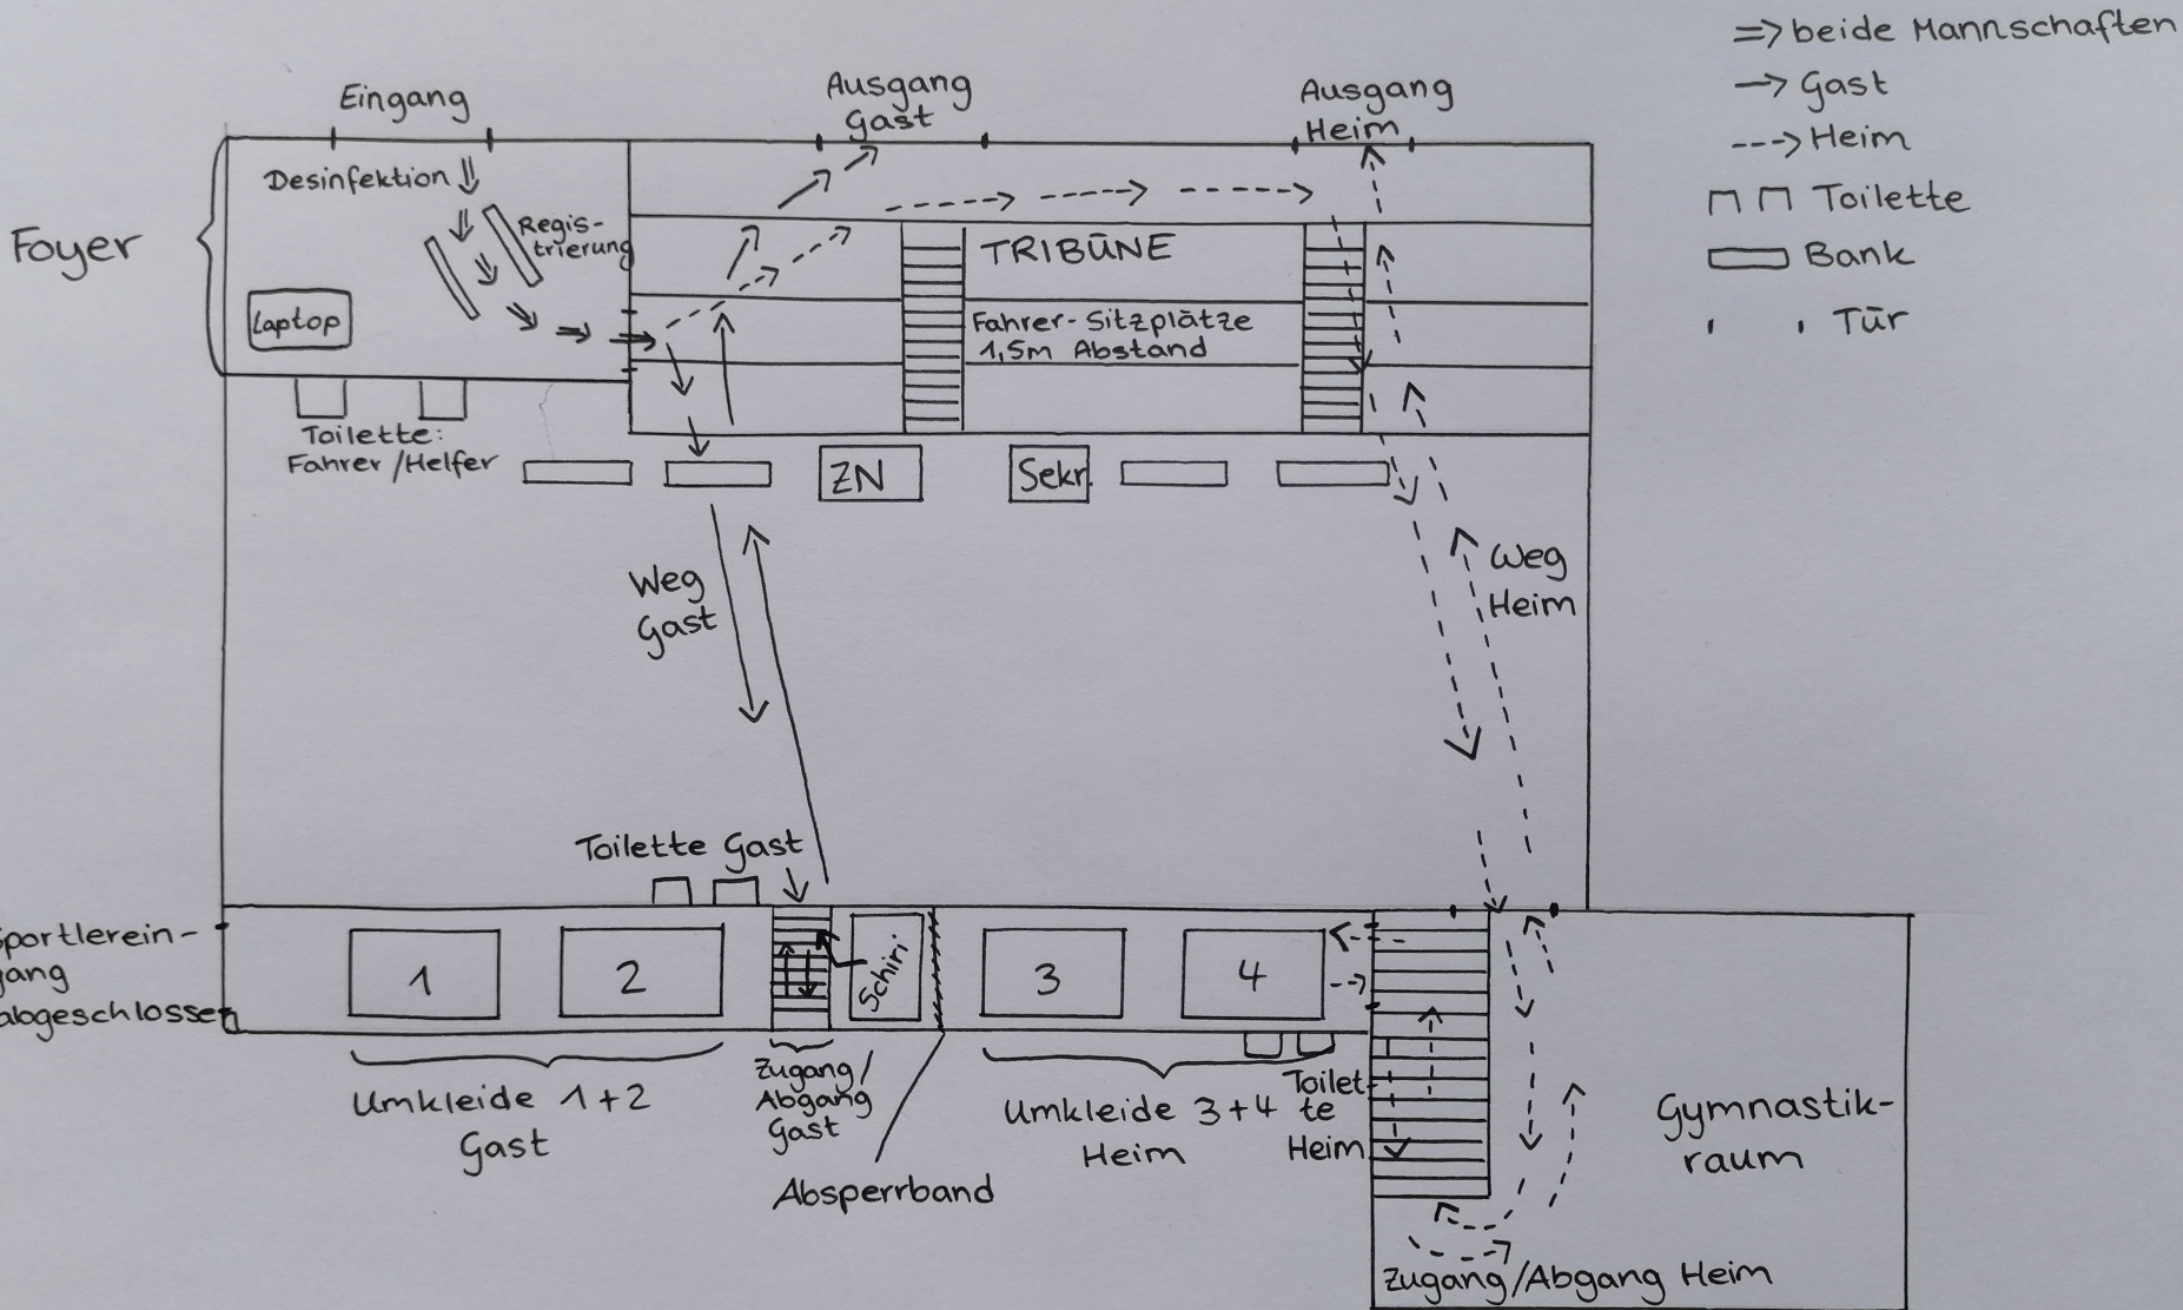 => beide Mannschaften
-> Gast
---> Heim
Toilette
Bank
Tür
Eingang
Ausgang
Gast
Ausgang
Heim
Foyer
Desinfektion
Regis-
trierung
Laptop
TRIBÜNE
Fahrer-Sitzplätze
1,5m Abstand
Toilette:
Fahrer/Helfer
ZN
Sekr.
Weg
Gast
Weg
Heim
Toilette Gast
Sportlerein-
gang
abgeschlossen
1
2
Schiri
3
4
Umkleide 1+2
Gast
Zugang/
Abgang
Gast
Absperrband
Umkleide 3+4
Heim
Toilet-
te
Heim
Gymnastik-
raum
Zugang/Abgang Heim